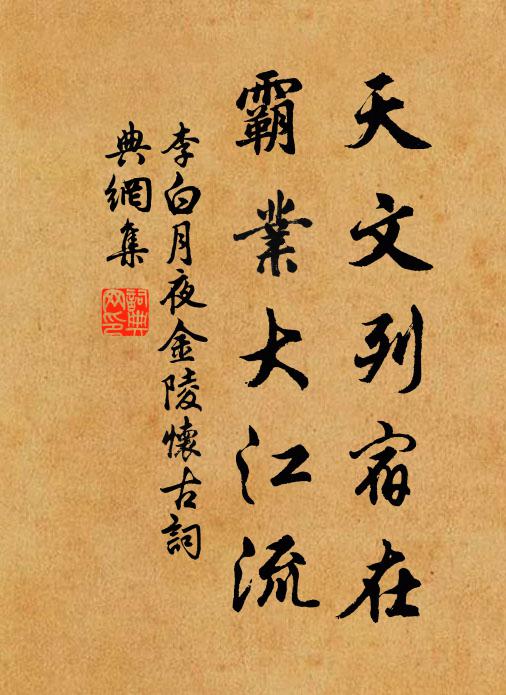 天文列宿在
霸業大江流
李白月夜金陵懷古詞
典網集
詞典網印